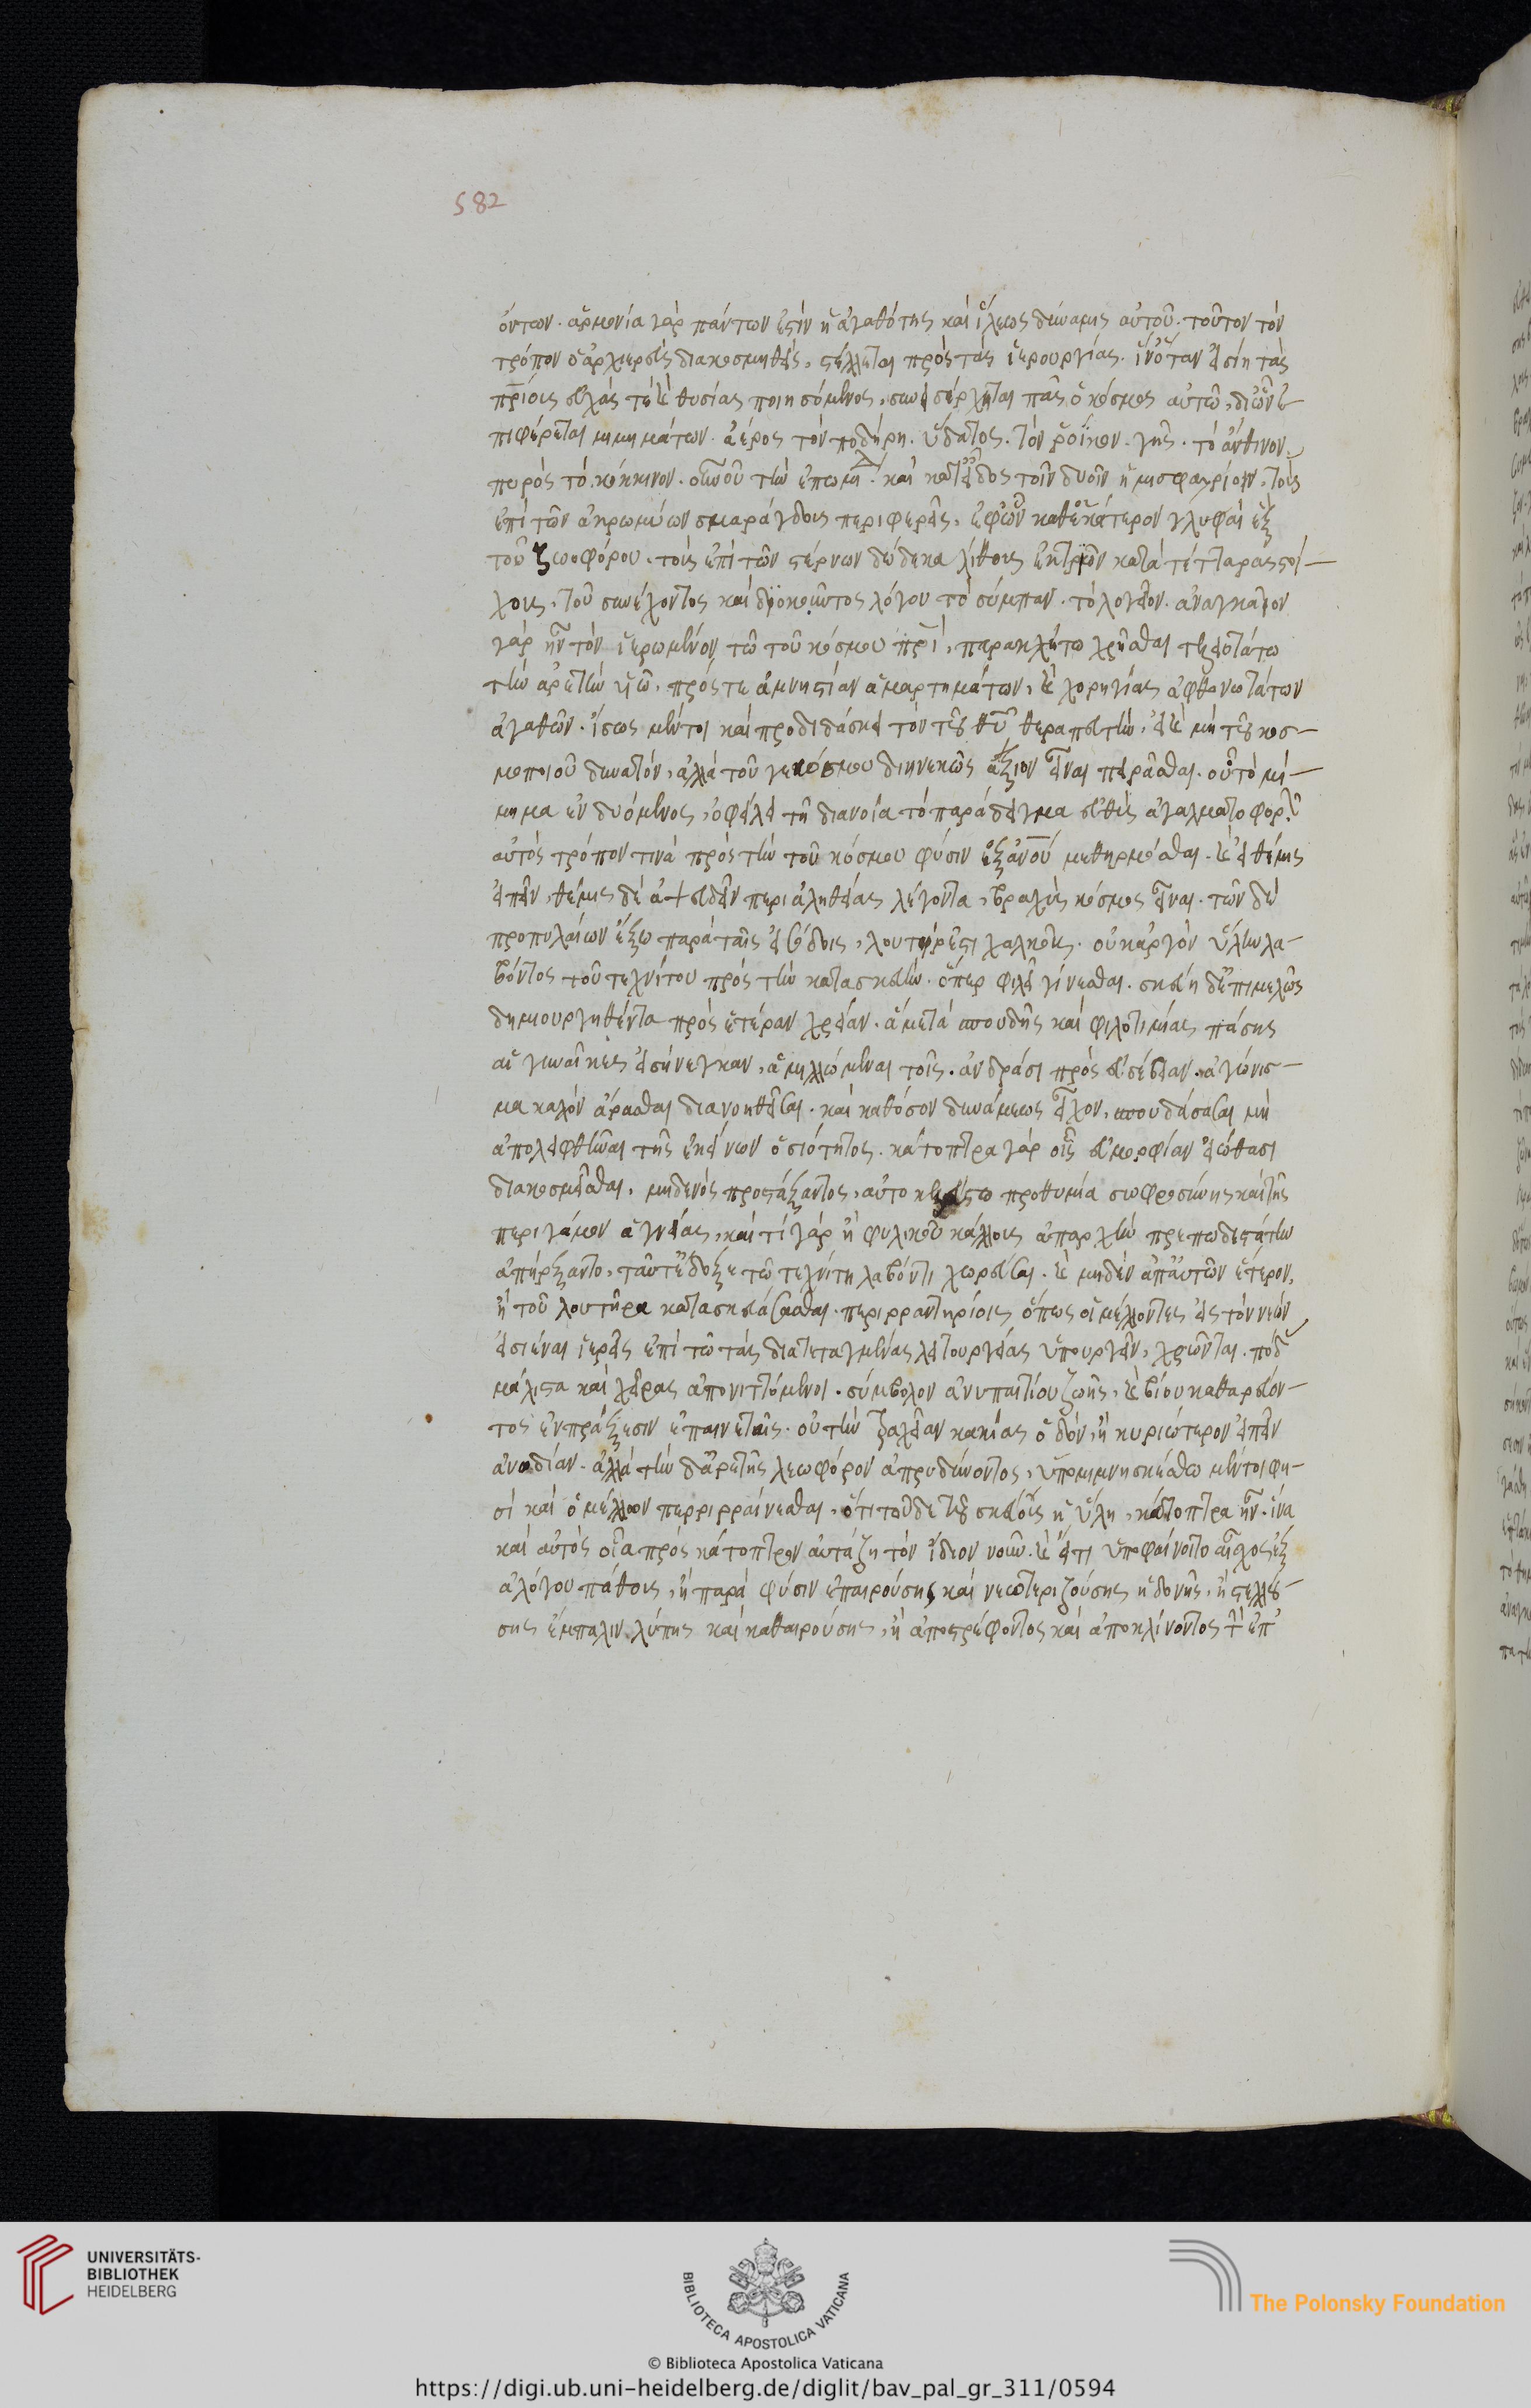 582
όντων. ἁρμονία γὰρ πάντων ἐστὶν ἡ ἀγαθότης καὶ ἵλεως δύναμις αὐτοῦ. τοῦτον τὸν
τρόπον ὁ ἀρχιερεὺς διακοσμηθεὶς, στέλλεται πρὸς τὰς ἱερουργίας. ἵν' ὅταν εἰσίη τὰς
πρίους εὐχὰς τὲ καὶ θυσίας ποιησόμενος, συνεισέρχηται πᾶς ὁ κόσμος αὐτῶ, δι' ὧν ἐ-
πιφέρεται μιμημάτων. ἀέρος τὸν ποδήρη. ὕδατος. τὸν ῥοΐκον. γῆς. τὸ ἄνθινον.
πυρὸς τὸ κόκκινον. οὐνοῦ τὴν ἐπωμίδα. καὶ κατ' εἶδος τοῖν δυοῖν ἡμισφαιρίοιν, τοὺς
ἐπὶ τῶν ἀκρωμίων σμαράγδους περιφερεῖς, ἐφ' ὧν καθ' ἑκάτερον γλυφαὶ ἓξ
τοῦ ζωοφόρου. τοὺς ἐπὶ τῶν στέρνων δώδεκα λίθους ἐκ τριῶν κατὰ τέτταρας στοί-
χους. τοῦ συνέχοντος καὶ διοικοῦντος λόγου τὸ σύμπαν. τὸ λογεῖον. ἀναγκαῖον
γὰρ ἦν τὸν ἱερωμένον τῶ τοῦ κόσμου πρὶ, παρακλήτω χρῆσθαι τελειοτάτω
τὴν ἀρετὴν υἱῶ, πρός τε ἀμνηστίαν ἁμαρτημάτων, καὶ χορηγίας ἀφθονωτάτων
ἀγαθῶν. ἴσως μέντοι καὶ προδιδάσκει τὸν τοῦ θυ θεραπευτὴν, εἰ καὶ μὴ τοῦ κοσ-
μοποιοῦ δυνατόν, ἀλλὰ τοῦ γε κόσμου διηνεκῶς ἄξιον εἶναι πειρᾶσθαι. οὗ τὸ μί-
μημα ἐνδυόμενος, ὀφείλει τῆ διανοία τὸ παράδειγμα εὐθὺς ἀγαλματοφορεῖν
αὐτὸς τρόπον τινὰ πρὸς τὴν τοῦ κόσμου φύσιν ἐξ ἀνοῦ μεθηρμόσθαι. καὶ εἰ θέμις
εἰπεῖν, θέμις δὲ ἀψευδεῖν περὶ ἀληθείας λέγοντα, βραχὺς κόσμος εἶναι. τῶν δὲ
προπυλαίων ἔξω παρὰ ταῖς εἰσόδοις, λουτήρ ἐστι χαλκοῦς. οὐκ ἀργὸν ὕλην λα-
βόντος τοῦ τεχνίτου πρὸς τὴν κατασκευὴν. ὅπερ φιλεῖ γίνεσθαι. σκεύη δ' ἐπιμελῶς
δημιουργηθέντα πρὸς ἑτέραν χρείαν. ἃ μετὰ σπουδῆς καὶ φιλοτιμίας πάσης
αἱ γυναῖκες εἰσήνεγκαν, ἁμιλλώμεναι τοῖς. ἀνδράσι πρὸς εὐσέβειαν. ἀγώνισ-
μα καλὸν ἄρασθαι διανοηθεῖσαι. καὶ καθόσον δυνάμεως εἶχον, σπουδάσασαι μὴ
ἀπολειφθῆναι τῆς ἐκείνων ὁσιότητος. κάτοπτρα γὰρ οἷς εὐμορφίαν εἰώθασι
διακοσμεῖσθαι, μηδενὸς προστάξαντος, αὐτοκελεύστω προθυμία σωφροσύνης καὶ τῆς
περὶ γάμον ἁγνείας, καὶ τί γὰρ ἢ ψυχικοῦ κάλλους ἀπαρχὴν πρεπωδεστάτην
ἀπήρξαντο, ταῦτ' ἔδοξε τῶ τεχνίτη λαβόντι χωρεῦσαι. καὶ μηδὲν ἀπ' αὐτῶν ἕτερον,
ἢ τοῦ λουτῆρα κατασκευάσασθαι. περιρραντηρίοις ὅπως οἱ μέλλοντες εἰς τὸν νεὼν
εἰσιέναι ἱερεῖς ἐπὶ τῶ τὰς διατεταγμένας λειτουργείας ὑπουργεῖν, χρῶνται. πόδ
μάλιστα καὶ χεῖρας ἀπονιπτόμενοι. σύμβολον ἀνυπαιτίου ζωῆς, καὶ βίου καθαρεύον-
τος ἐν πράξεσιν ἐπαινεταῖς. οὐ τὴν τραχεῖαν κακίας ὁδόν, ἢ κυριώτερον εἰπεῖν
ἀνοδίαν. ἀλλὰ τὴν δ' ἀρετῆς λεωφόρον ἀπευθύνοντος, ὑπομιμνησκέσθω μέντοι φη-
σί καὶ ὁ μέλλων περιρραίνεσθαι, ὅτι τοῦδε τοῦ σκεύους ἡ ὕλη, κάτοπτρα ἦν. ἵνα
καὶ αὐτὸς οἷα πρὸς κάτοπτρον αὐγάζη τὸν ἴδιον νοῦν. καὶ εἴ τι ὑποφαίνοιτο αἶσχος ἐξ
ἀλόγου πάθους, ἢ παρὰ φύσιν ἐπαιρούσης καὶ νεωτεριζούσης ἡδονῆς, ἢ στελλού-
σης ἔμπαλιν λύπης καὶ καθαιρούσης, ἢ ἀποστρέφοντος καὶ ἀποκλίνοντος τὴν ἐπ'
UNIVERSITÄTS-
BIBLIOTHEK
HEIDELBERG
BIBLIOTECA APOSTOLICA VATICANA
The Polonsky Foundation
© Biblioteca Apostolica Vaticana
https://digi.ub.uni-heidelberg.de/diglit/bav_pal_gr_311/0594